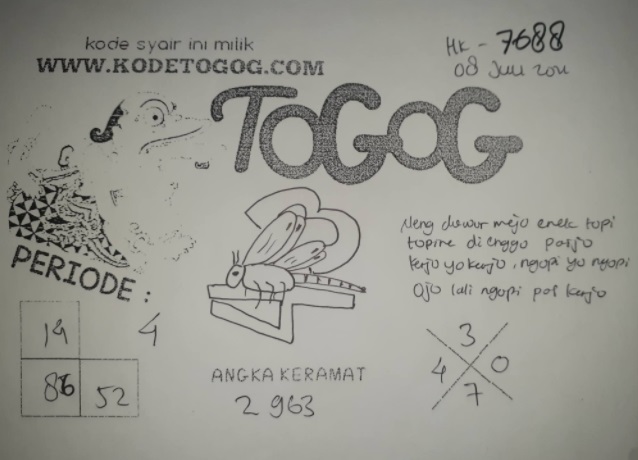 kode syair ini milik
WWW.KODETOGOG.COM
HK - 7688
08 Juli 2011
TOGOG
PERIODE :
Neng duwur mejo enek topi
topine dienggo parjo
kerjo yo kerjo, ngopi yo ngopi
Ojo lali ngopi pas kerjo
19 4
86 52
ANGKA KERAMAT
2 963
3
4 0
7